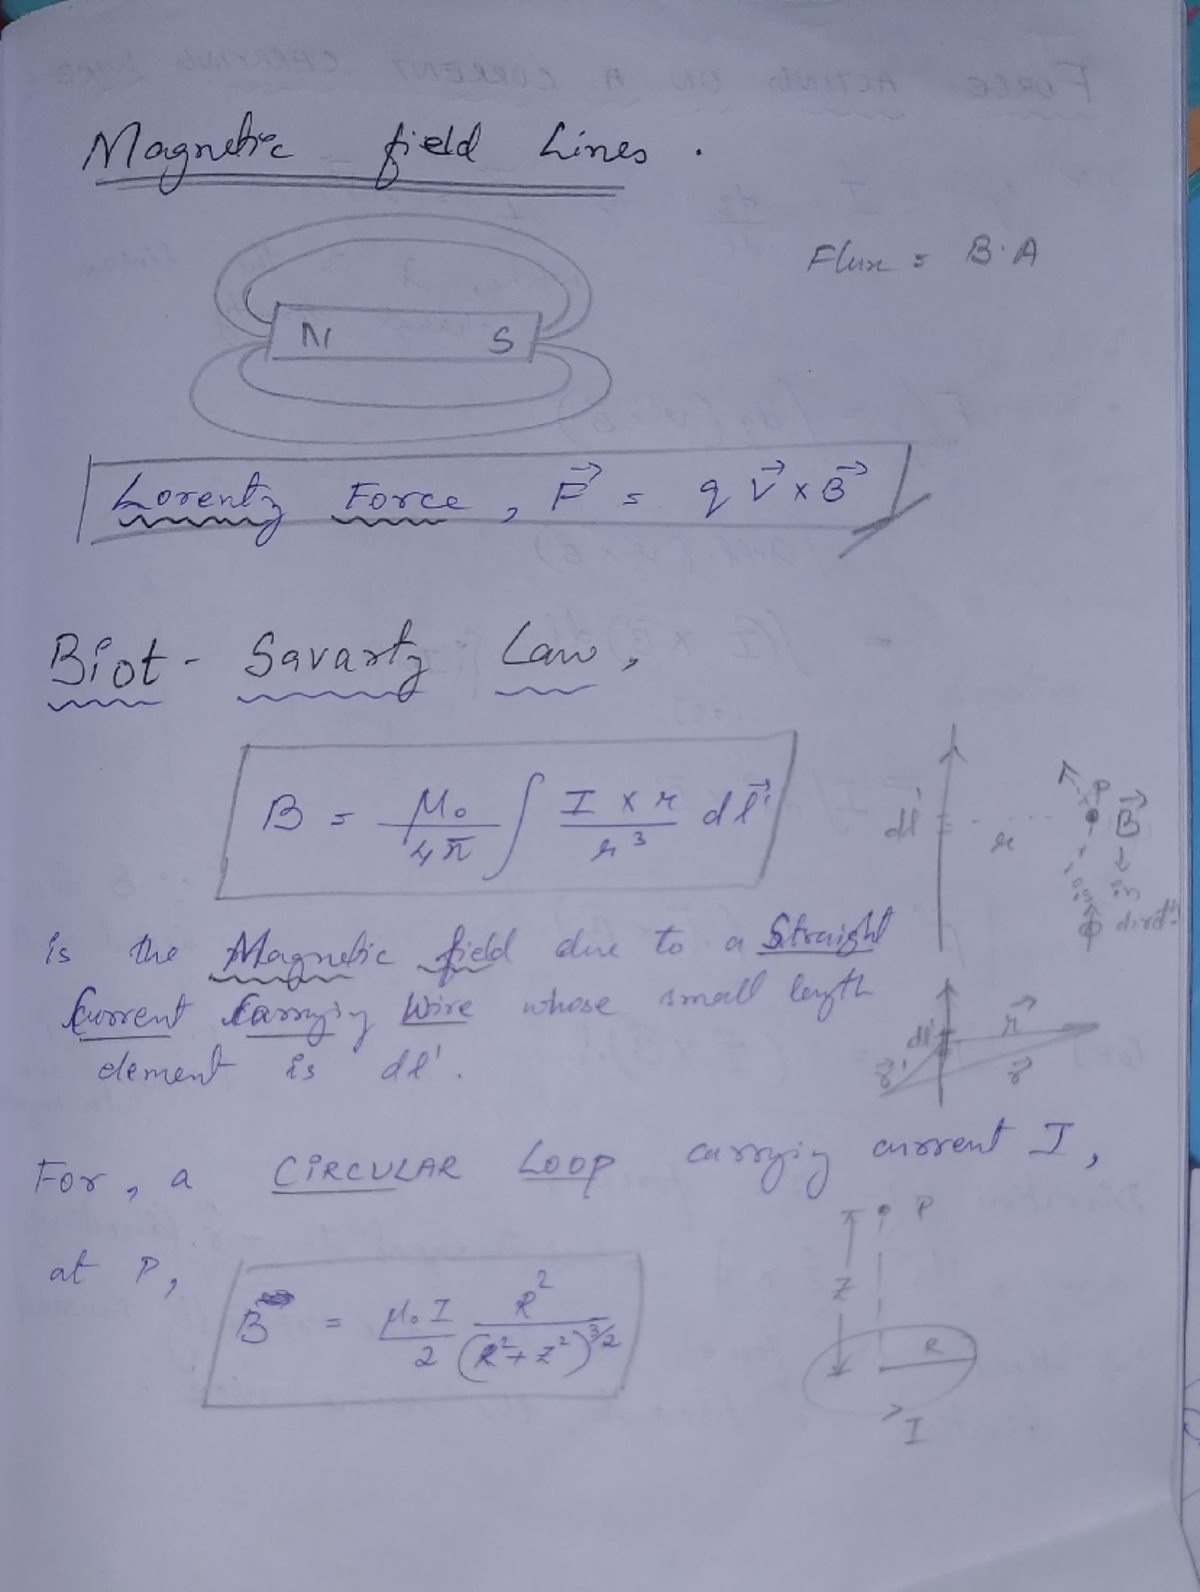 Magnetic field Lines.
Flux = B·A
N S
Lorentz Force, F⃗ = q V⃗ × B⃗
Biot-Savartz Law,
B = μ₀/4π ∫ I × r/r³ dl⃗'
dl' r P B⃗
is in
dirctn
is the Magnetic field due to a Straight
Current Carrying Wire whose small length
element is dl'.
dl' r⃗
r⃗' r⃗
For, a CIRCULAR LOOP carrying current I,
at P,
B = μ₀I/2 R²/(R²+z²)^3/2
P
z
R
I